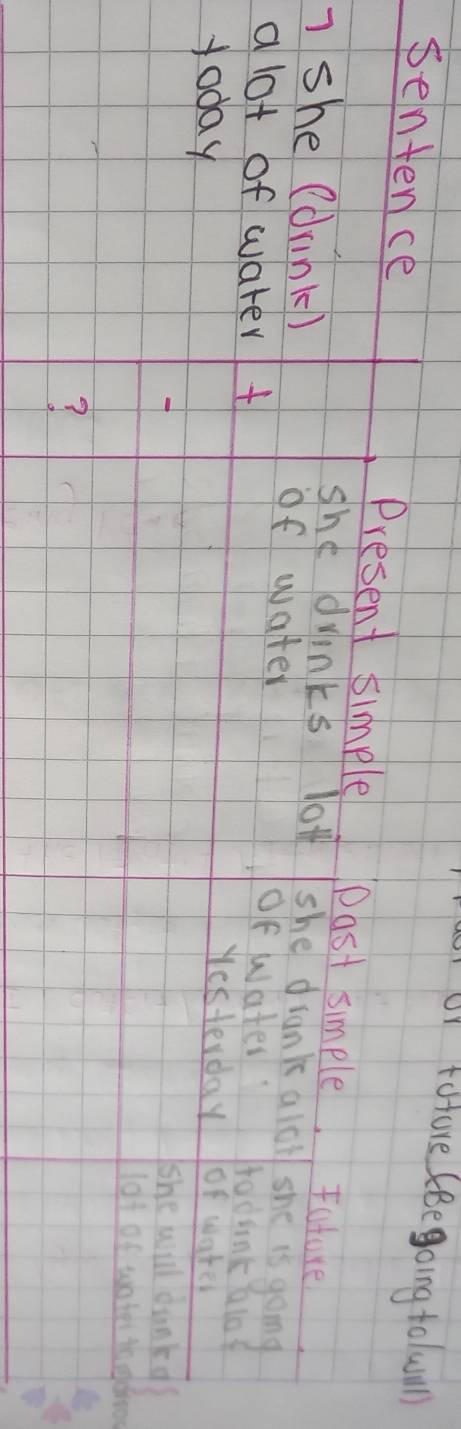 or future (Be going to/will)
Sentence
Present simple
Past simple
Future
1 She (drink)
a lot of water
today
+
-
?
She drinks lot
of water
She drank alot
of water.
Yesterday
She is going
to drink alot
of water
She will drink a
lot of water